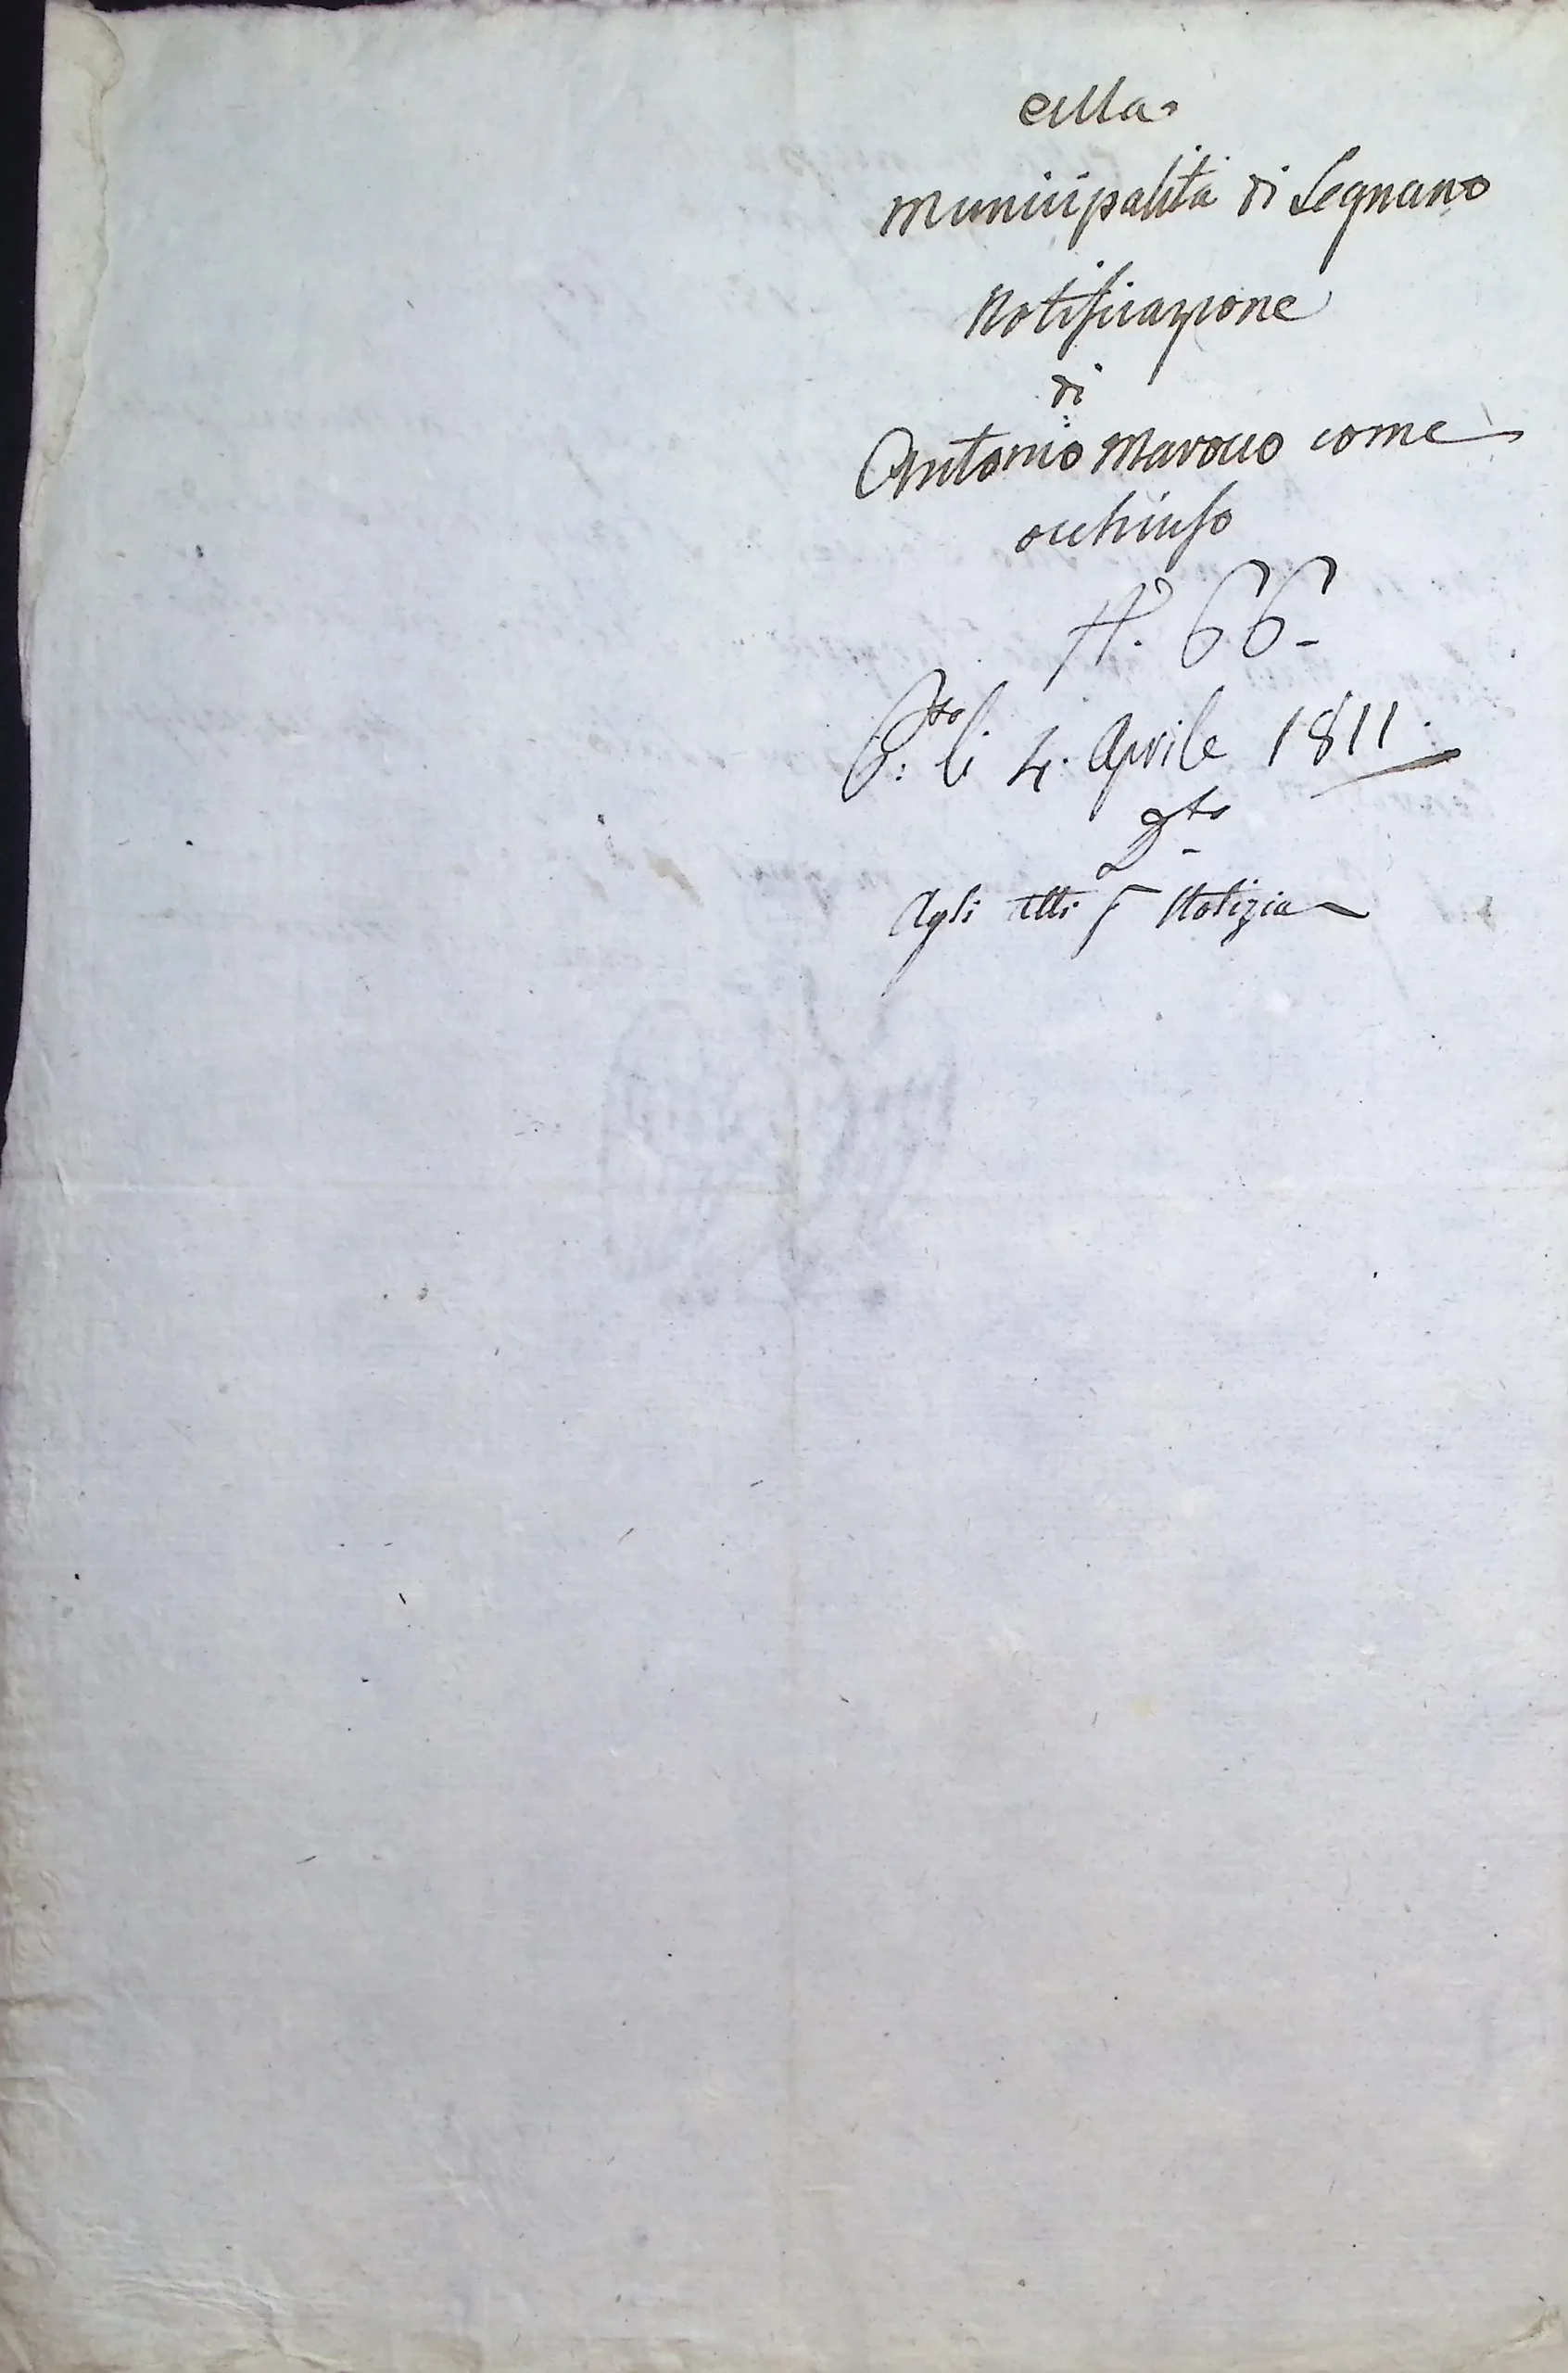 Alla
Municipalità di Legnano
Notificazione
di
Antonio Marocco come
occhiuso
N.° 66
P.to li 4. Aprile 1811.
D.to
Agli Atti p Notizia